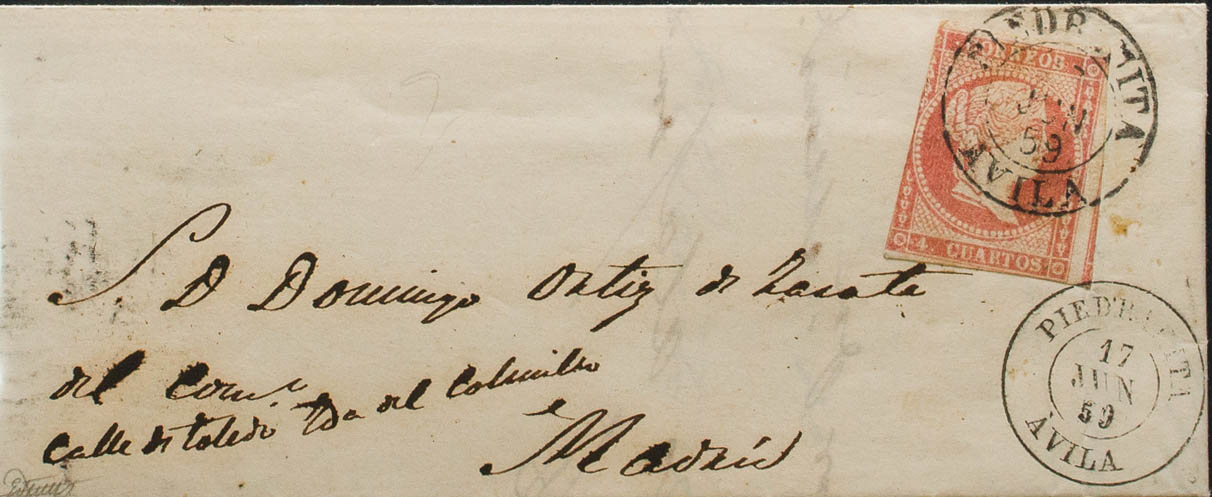 PIEDRAHITA
JUN
59
AVILA
CORREOS
4 CUARTOS
S. D Domingo Ortiz de Zarate
del comº
calle de toledo tda del Colmillo
Madrid
PIEDRAHITA
17
JUN
59
AVILA